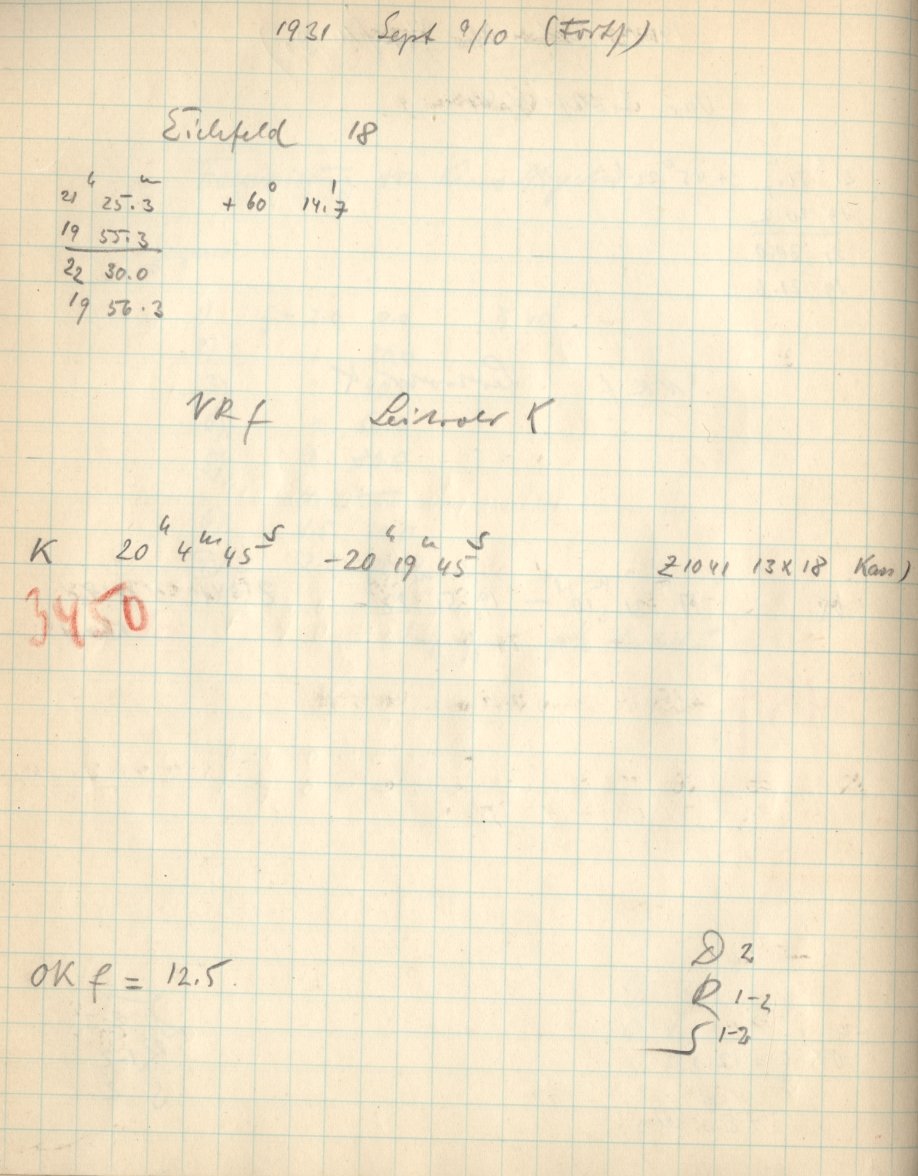 1931 Sept 9/10 (Forts)
Eichfeld 18
21h 25.3m +60° 14.7'
19 55.3
22 30.0
19 56.3
VR f Leitrohr K
K 20h 4m 45s - 20h 19m 45s Z1041 13x18 Kass)
3450
OK f = 12.5
D 2
R 1-2
S 1-2